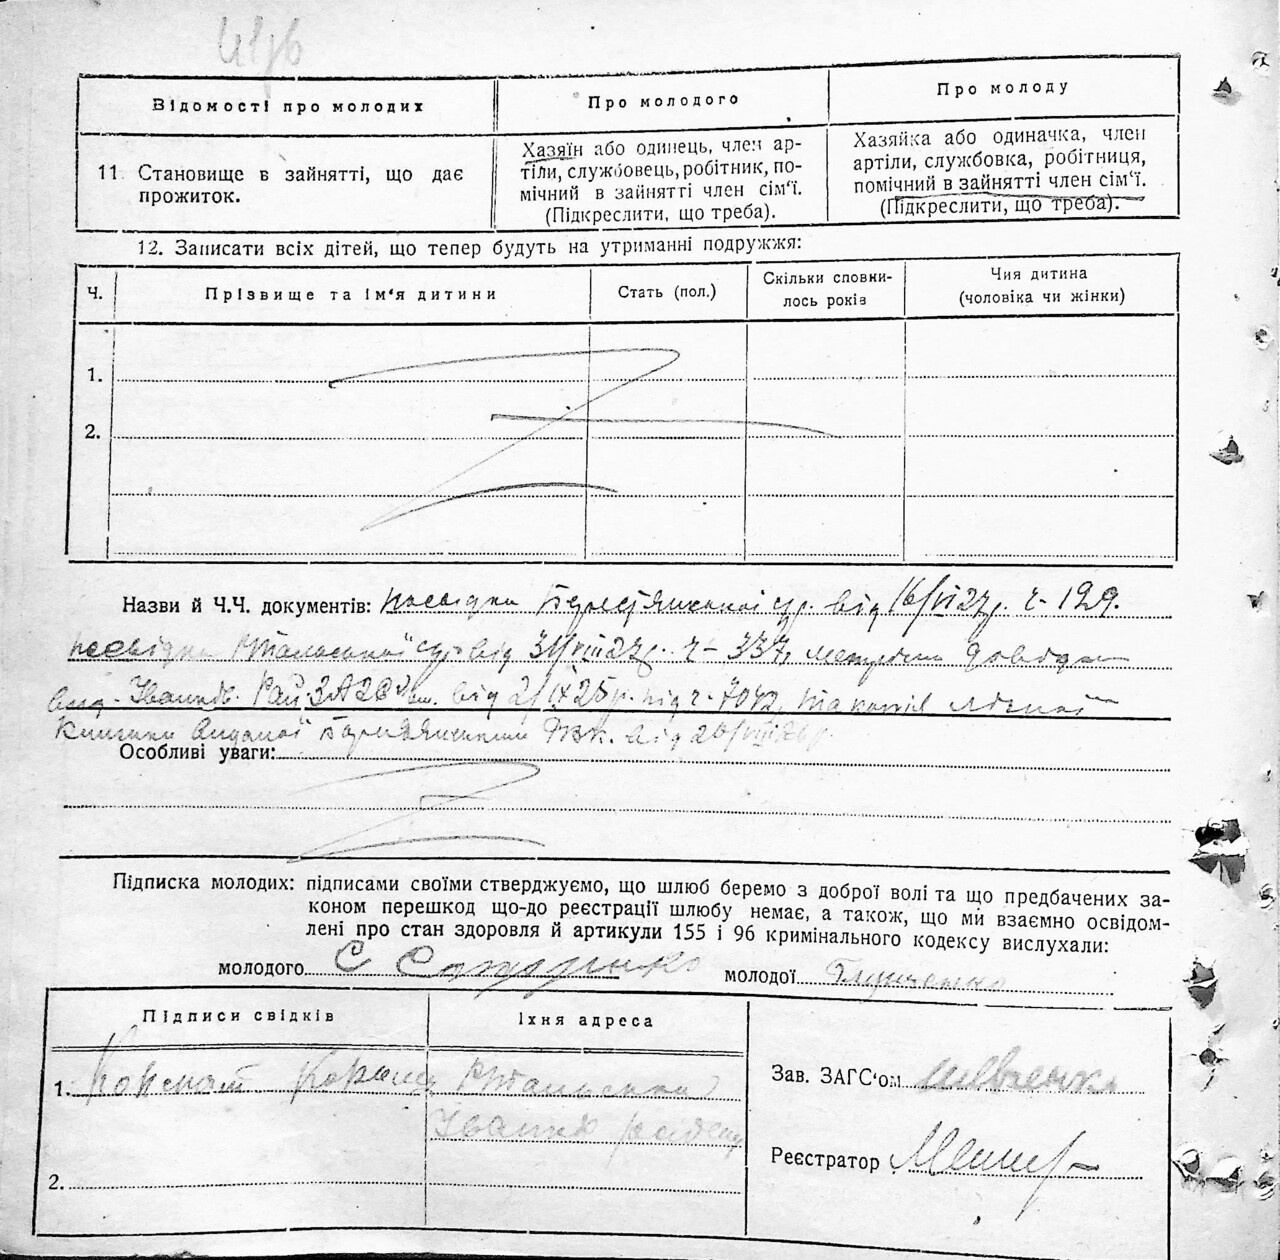 Відомості про молодих
Про молодого
Про молоду
11. Становище в зайнятті, що дає
прожиток.
Хазяїн або одинець, член ар-
тіли, службовець, робітник, по-
мічний в зайнятті член сім'ї.
(Підкреслити, що треба).
Хазяйка або одиначка, член
артіли, службовка, робітниця,
помічний в зайнятті член сім'ї.
(Підкреслити, що треба).
12. Записати всіх дітей, що тепер будуть на утриманні подружжя:
Ч.
Прізвище та ім'я дитини
Стать (пол.)
Скільки сповни-
лось років
Чия дитина
(чоловіка чи жінки)
1.
2.
Назви й Ч.Ч. документів: посвідка від 16/VI 27 р. ч-129.
посвідка від 31/VIII 27 р. ч-337, метрична довідка
вид. Іванк. Рай. ЗАГСом від 2/IX 25 р. під ч. 7042, та копія
книжки виданої від
Особливі уваги:
Підписка молодих: підписами своїми стверджуємо, що шлюб беремо з доброї волі та що предбачених за-
коном перешкод що-до реєстрації шлюбу немає, а також, що ми взаємно освідом-
лені про стан здоровля й артикули 155 і 96 кримінального кодексу вислухали:
молодого С
молодої
Підписи свідків
Їхня адреса
1.
2.
Зав. ЗАГС'ом Шевченко
Реєстратор